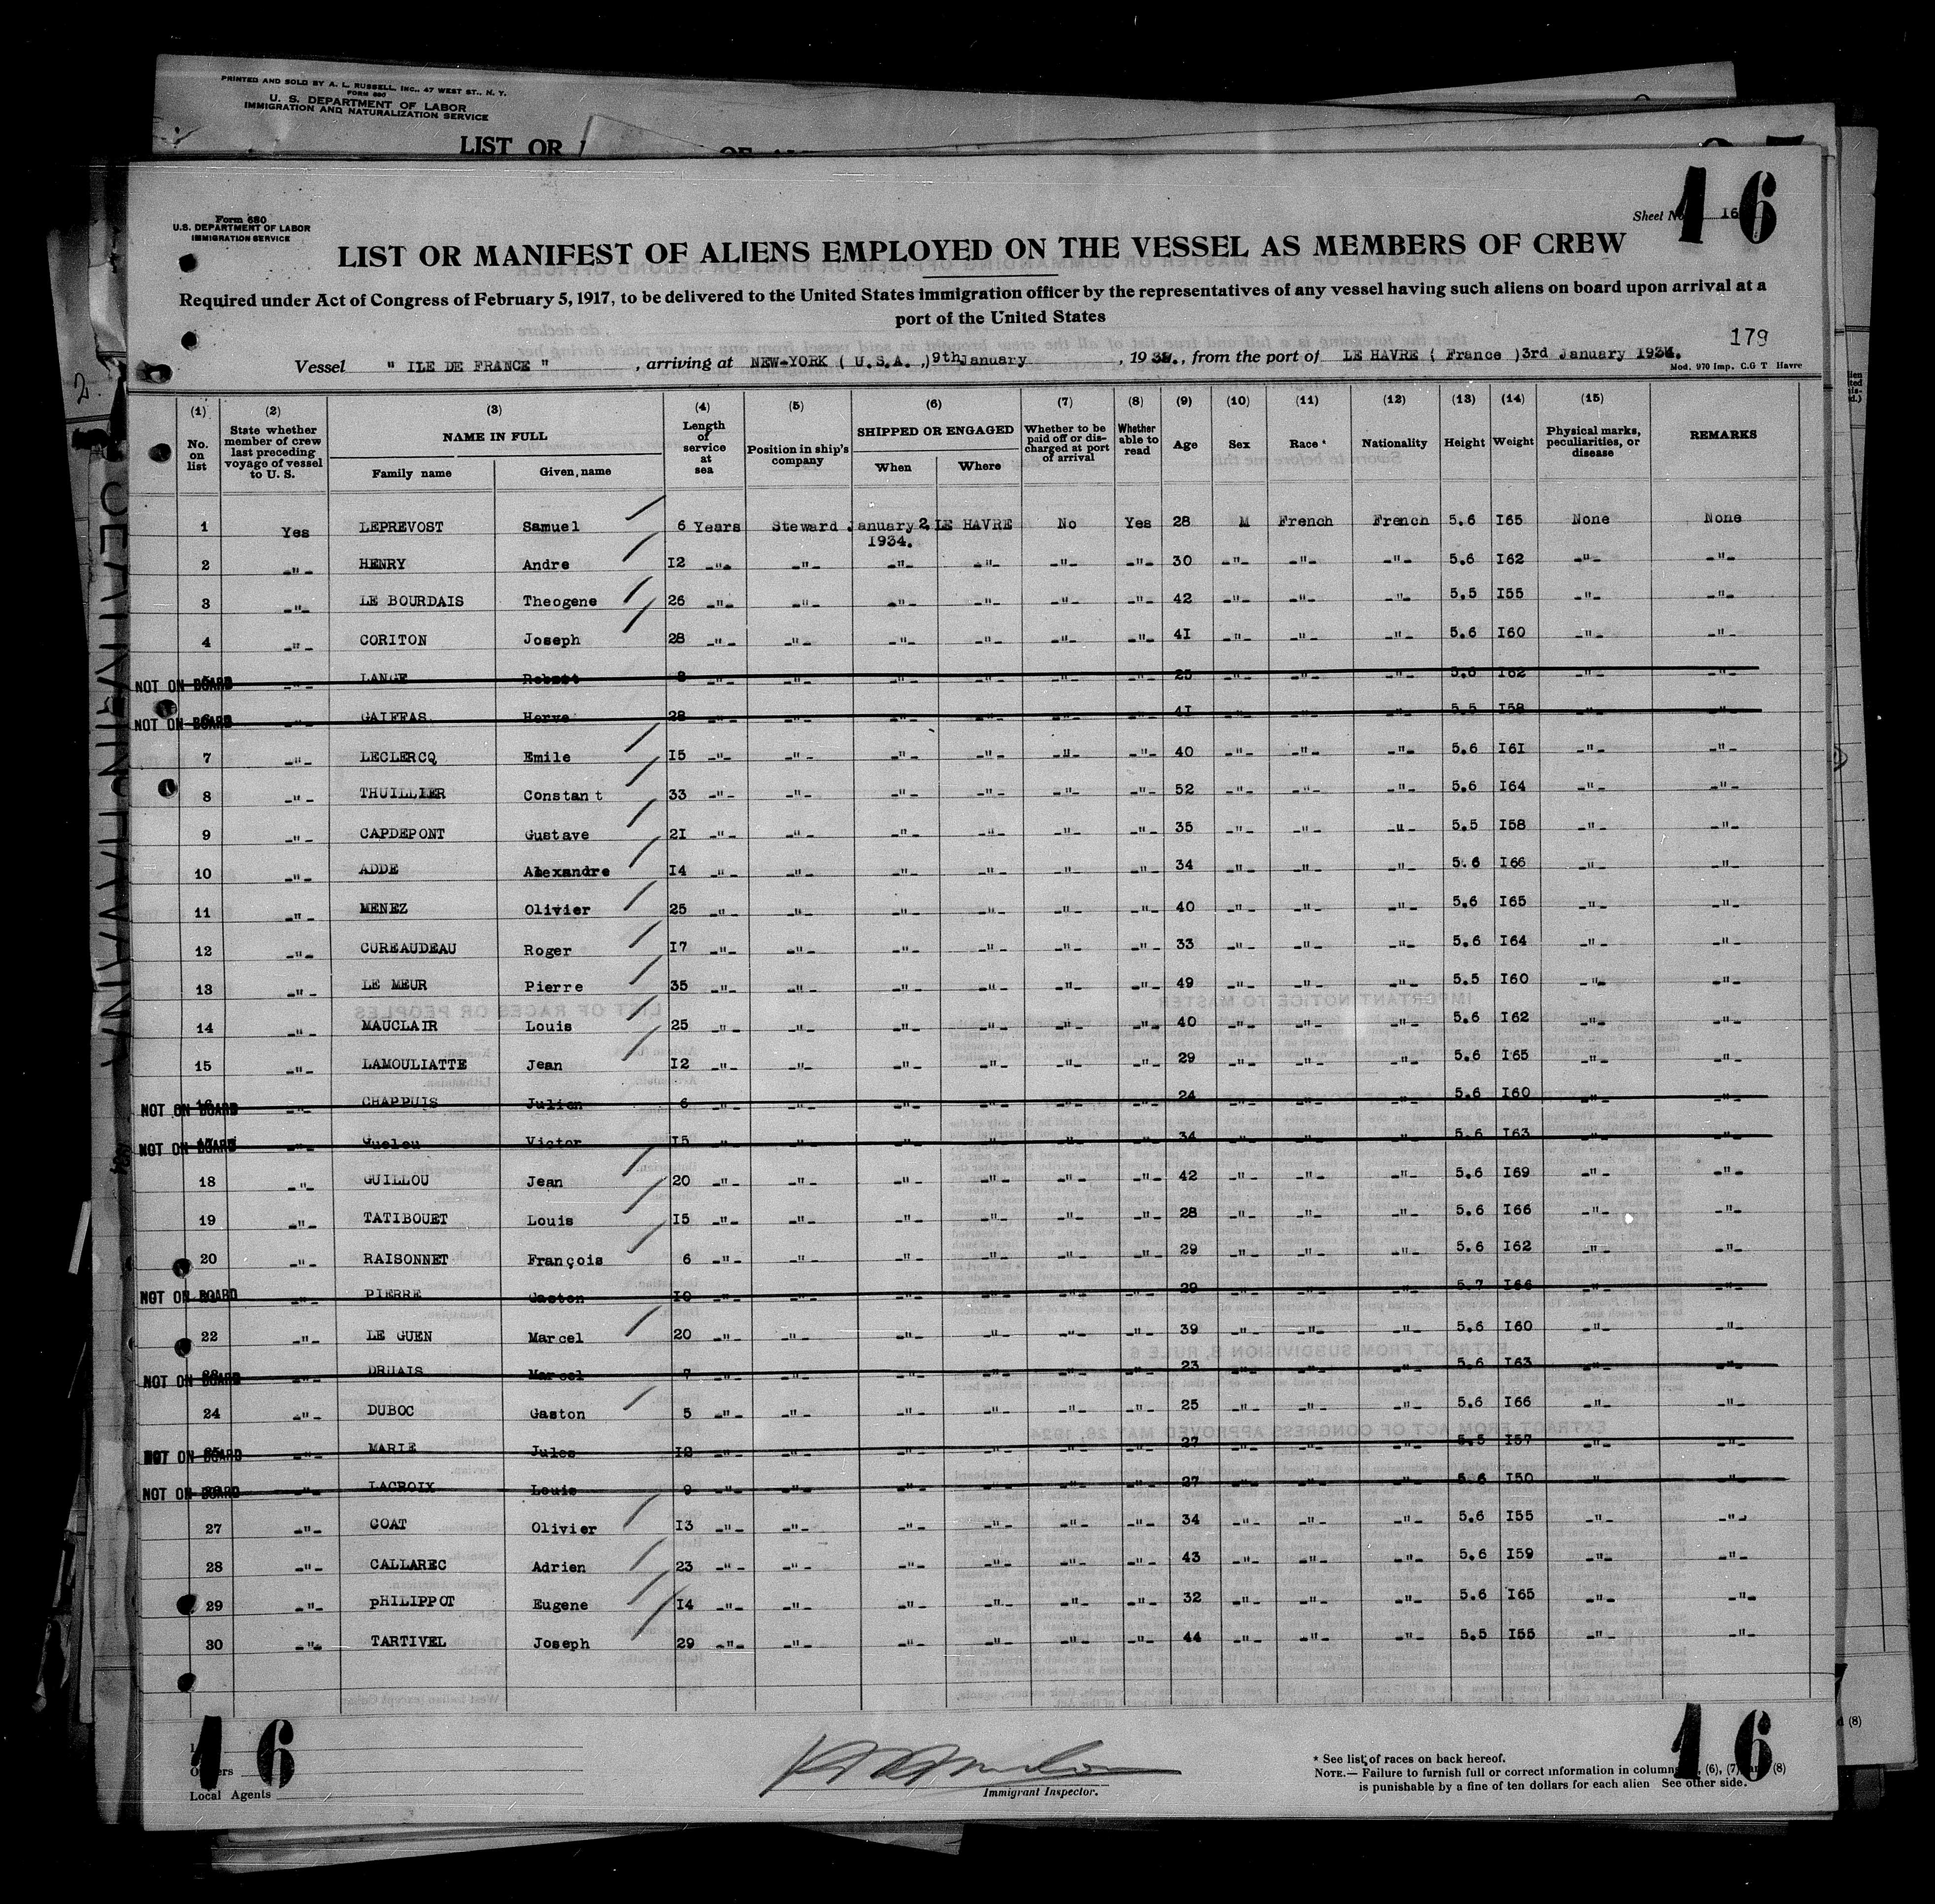 PRINTED AND SOLD BY A. L. RUSSELL, INC., 47 WEST ST., N. Y.
FORM 680
U. S. DEPARTMENT OF LABOR
IMMIGRATION AND NATURALIZATION SERVICE
LIST OR
16
Sheet No. I6
Form 680
U.S. DEPARTMENT OF LABOR
IMMIGRATION SERVICE
LIST OR MANIFEST OF ALIENS EMPLOYED ON THE VESSEL AS MEMBERS OF CREW
Required under Act of Congress of February 5, 1917, to be delivered to the United States immigration officer by the representatives of any vessel having such aliens on board upon arrival at a
port of the United States
179
Vessel " ILE DE FRANCE " , arriving at NEW-YORK ( U.S.A. ,) 9th January , 1934., from the port of LE HAVRE ( France ) 3rd January 1934.
Mod. 970 Imp. C.G T Havre
(1) (2) (3) (4) (5) (6) (7) (8) (9) (10) (11) (12) (13) (14) (15)
No. on list | State whether member of crew last preceding voyage of vessel to U. S. | NAME IN FULL | Length of service at sea | Position in ship's company | SHIPPED OR ENGAGED | Whether to be paid off or discharged at port of arrival | Whether able to read | Age | Sex | Race * | Nationality | Height | Weight | Physical marks, peculiarities, or disease | REMARKS
Family name | Given, name | When | Where
1 Yes LEPREVOST Samuel 6 Years Steward January 2, LE HAVRE No Yes 28 M French French 5.6 I65 None None
1934.
2 -"- HENRY Andre I2 -"- -"- -"- -"- -"- -"- 30 -"- -"- -"- 5.6 I62 -"- -"-
3 -"- LE BOURDAIS Theogene 26 -"- -"- -"- -"- -"- -"- 42 -"- -"- -"- 5.5 I55 -"- -"-
4 -"- CORITON Joseph 28 -"- -"- -"- -"- -"- -"- 4I -"- -"- -"- 5.6 I60 -"- -"-
NOT ON BOARD 5 -"- LANGE Robert 8 -"- -"- -"- -"- -"- -"- 25 -"- -"- -"- 5.6 I62 -"- -"-
NOT ON BOARD 6 -"- GAIFFAS Herve 28 -"- -"- -"- -"- -"- -"- 4I -"- -"- -"- 5.5 I58 -"- -"-
7 -"- LECLERCQ Emile I5 -"- -"- -"- -"- -"- -"- 40 -"- -"- -"- 5.6 I6I -"- -"-
8 -"- THUILLIER Constant 33 -"- -"- -"- -"- -"- -"- 52 -"- -"- -"- 5.6 I64 -"- -"-
9 -"- CAPDEPONT Gustave 2I -"- -"- -"- -"- -"- -"- 35 -"- -"- -"- 5.5 I58 -"- -"-
10 -"- ADDE Alexandre I4 -"- -"- -"- -"- -"- -"- 34 -"- -"- -"- 5.6 I66 -"- -"-
11 -"- MENEZ Olivier 25 -"- -"- -"- -"- -"- -"- 40 -"- -"- -"- 5.6 I65 -"- -"-
12 -"- CUREAUDEAU Roger I7 -"- -"- -"- -"- -"- -"- 33 -"- -"- -"- 5.6 I64 -"- -"-
13 -"- LE MEUR Pierre 35 -"- -"- -"- -"- -"- -"- 49 -"- -"- -"- 5.5 I60 -"- -"-
14 -"- MAUCLAIR Louis 25 -"- -"- -"- -"- -"- -"- 40 -"- -"- -"- 5.6 I62 -"- -"-
15 -"- LAMOULIATTE Jean I2 -"- -"- -"- -"- -"- -"- 29 -"- -"- -"- 5.6 I65 -"- -"-
NOT ON BOARD 16 -"- CHAPPUIS Julien 6 -"- -"- -"- -"- -"- -"- 24 -"- -"- -"- 5.6 I60 -"- -"-
NOT ON BOARD 17 -"- Guelou Victor I5 -"- -"- -"- -"- -"- -"- 34 -"- -"- -"- 5.6 I63 -"- -"-
18 -"- GUILLOU Jean 20 -"- -"- -"- -"- -"- -"- 42 -"- -"- -"- 5.6 I69 -"- -"-
19 -"- TATIBOUET Louis I5 -"- -"- -"- -"- -"- -"- 28 -"- -"- -"- 5.6 I66 -"- -"-
20 -"- RAISONNET François 6 -"- -"- -"- -"- -"- -"- 29 -"- -"- -"- 5.6 I62 -"- -"-
NOT ON BOARD 21 -"- PIERRE Gaston I0 -"- -"- -"- -"- -"- -"- 29 -"- -"- -"- 5.7 I66 -"- -"-
22 -"- LE GUEN Marcel 20 -"- -"- -"- -"- -"- -"- 39 -"- -"- -"- 5.6 I60 -"- -"-
NOT ON BOARD 23 -"- DRUAIS Marcel 7 -"- -"- -"- -"- -"- -"- 23 -"- -"- -"- 5.6 I63 -"- -"-
24 -"- DUBOC Gaston 5 -"- -"- -"- -"- -"- -"- 25 -"- -"- -"- 5.6 I66 -"- -"-
NOT ON BOARD 25 -"- MARIE Jules -"- -"- -"- -"- -"- -"- 27 -"- -"- -"- 5.5 I57 -"- -"-
NOT ON BOARD 26 -"- LACROIX Louis 9 -"- -"- -"- -"- -"- -"- 27 -"- -"- -"- 5.6 I50 -"- -"-
27 -"- GOAT Olivier I3 -"- -"- -"- -"- -"- -"- 34 -"- -"- -"- 5.6 I55 -"- -"-
28 -"- CALLAREC Adrien 23 -"- -"- -"- -"- -"- -"- 43 -"- -"- -"- 5.6 I59 -"- -"-
29 -"- pHILIPPOT Eugene I4 -"- -"- -"- -"- -"- -"- 32 -"- -"- -"- 5.6 I65 -"- -"-
30 -"- TARTIVEL Joseph 29 -"- -"- -"- -"- -"- -"- 44 -"- -"- -"- 5.5 I55 -"- -"-
16
16
Local Agents
Immigrant Inspector.
* See list of races on back hereof.
NOTE.— Failure to furnish full or correct information in columns (6), (7) and (8)
is punishable by a fine of ten dollars for each alien See other side.